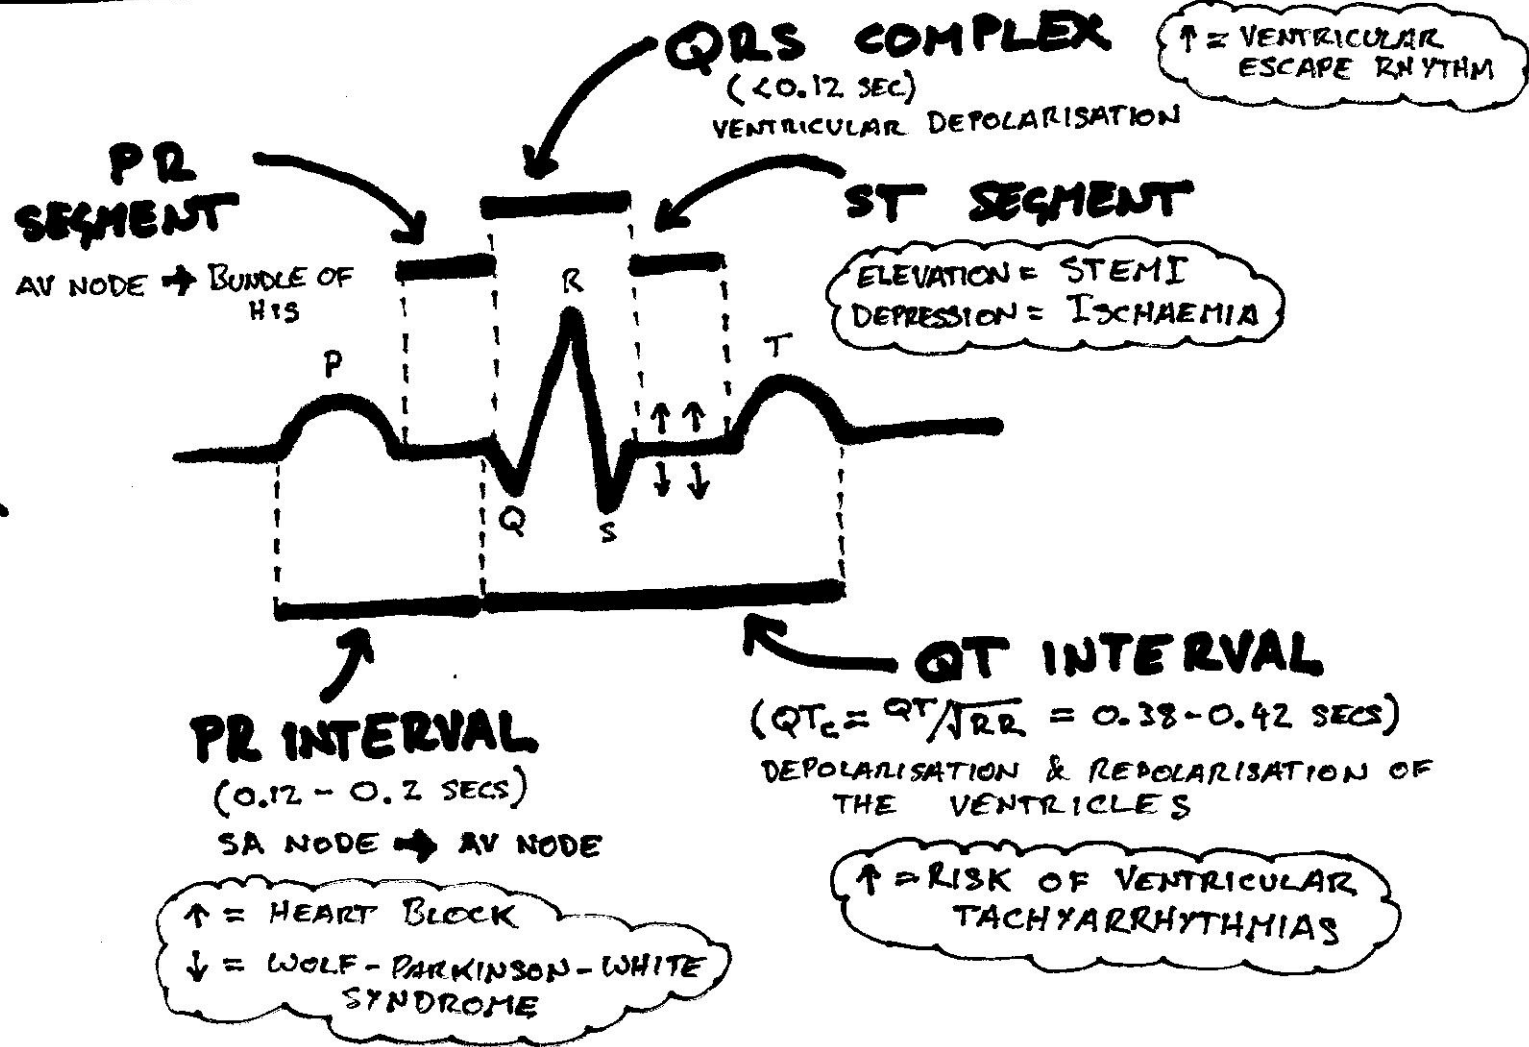 QRS COMPLEX
(<0.12 SEC)
VENTRICULAR DEPOLARISATION
↑ = VENTRICULAR
ESCAPE RHYTHM
PR
SEGMENT
AV NODE → BUNDLE OF
HIS
ST SEGMENT
ELEVATION = STEMI
DEPRESSION = ISCHAEMIA
P
R
T
Q
S
PR INTERVAL
(0.12 - 0.2 SECS)
SA NODE → AV NODE
↑ = HEART BLOCK
↓ = WOLF-PARKINSON-WHITE
SYNDROME
QT INTERVAL
(QTc = QT/√RR = 0.38-0.42 SECS)
DEPOLARISATION & REPOLARISATION OF
THE VENTRICLES
↑ = RISK OF VENTRICULAR
TACHYARRHYTHMIAS